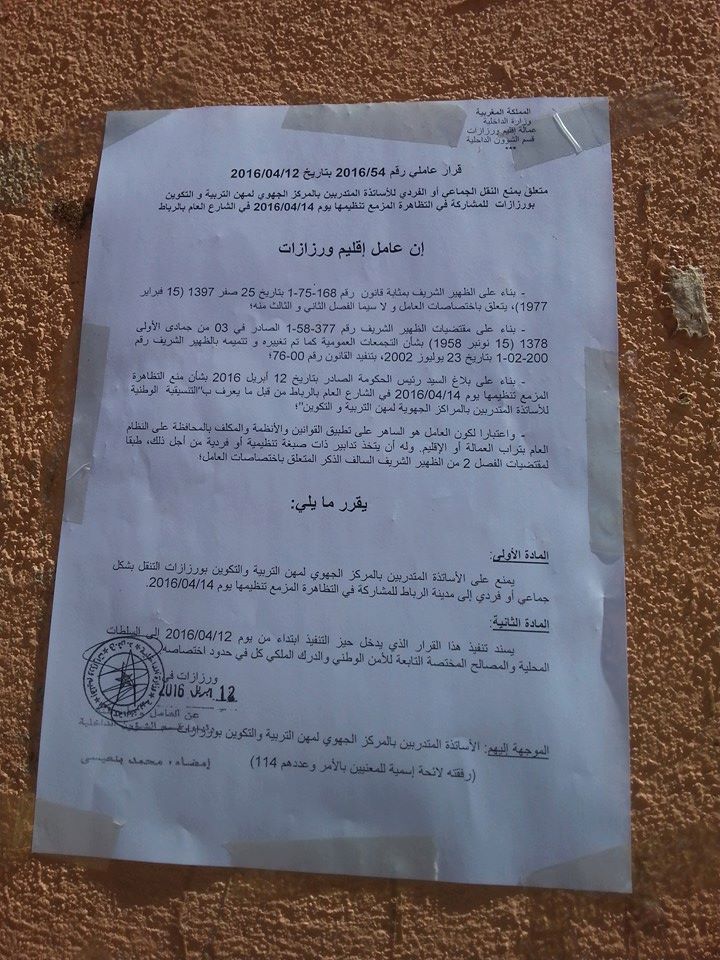 المملكة المغربية
وزارة الداخلية
عمالة إقليم ورزازات
قسم الشؤون الداخلية
***
قرار عاملي رقم 2016/54 بتاريخ 2016/04/12
متعلق بمنع النقل الجماعي أو الفردي للأساتذة المتدربين بالمركز الجهوي لمهن التربية و التكوين
بورزازات للمشاركة في التظاهرة المزمع تنظيمها يوم 2016/04/14 في الشارع العام بالرباط
إن عامل إقليم ورزازات
- بناء على الظهير الشريف بمثابة قانون رقم 168-75-1 بتاريخ 25 صفر 1397 (15 فبراير
1977)، يتعلق باختصاصات العامل و لا سيما الفصل الثاني و الثالث منه؛
- بناء على مقتضيات الظهير الشريف رقم 377-58-1 الصادر في 03 من جمادى الأولى
1378 (15 نونبر 1958) بشأن التجمعات العمومية كما تم تغييره و تتميمه بالظهير الشريف رقم
200-02-1 بتاريخ 23 يوليوز 2002، بتنفيد القانون رقم 00-76؛
- بناء على بلاغ السيد رئيس الحكومة الصادر بتاريخ 12 أبريل 2016 بشأن منع التظاهرة
المزمع تنظيمها يوم 2016/04/14 في الشارع العام بالرباط من قبل ما يعرف ب"التنسيقية الوطنية
للأساتذة المتدربين بالمراكز الجهوية لمهن التربية و التكوين"؛
- واعتبارا لكون العامل هو الساهر على تطبيق القوانين والأنظمة والمكلف بالمحافظة على النظام
العام بتراب العمالة أو الإقليم. وله أن يتخذ تدابير ذات صبغة تنظيمية أو فردية من أجل ذلك، طبقا
لمقتضيات الفصل 2 من الظهير الشريف السالف الذكر المتعلق باختصاصات العامل؛
يقرر ما يلي:
المادة الأولى:
يمنع على الأساتذة المتدربين بالمركز الجهوي لمهن التربية والتكوين بورزازات التنقل بشكل
جماعي أو فردي إلى مدينة الرباط للمشاركة في التظاهرة المزمع تنظيمها يوم 2016/04/14.
المادة الثانية:
يسند تنفيذ هذا القرار الذي يدخل حيز التنفيذ ابتداء من يوم 2016/04/12 إلى السلطات
المحلية والمصالح المختصة التابعة للأمن الوطني والدرك الملكي كل في حدود اختصاصه
ورزازات في
12 ابريل 2016
عن العامل و
قسم الشؤون الداخلية
الموجهة إليهم: الأساتذة المتدربين بالمركز الجهوي لمهن التربية والتكوين بورزازات
(رفقته لائحة إسمية للمعنيين بالأمر وعددهم 114)
إمضاء: محمد بنعيسى